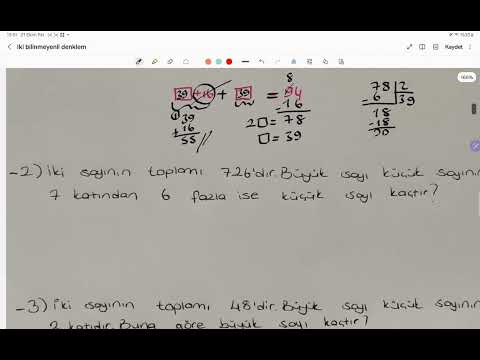 21 Ekim Paz
iki bilinmeyenli denklem
Kaydet
100%
8
39 +16 + 39 = 94
-16
2□ = 78
□ = 39
39
+ 16
55
78 2
- 6 39
18
-18
00
-2) İki sayının toplamı 726'dır. Büyük sayı küçük sayının
7 katından 6 fazla ise küçük sayı kaçtır?
-3) İki sayının toplamı 48'dir. Büyük sayı küçük sayının
2 katıdır. Buna göre büyük sayı kaçtır?